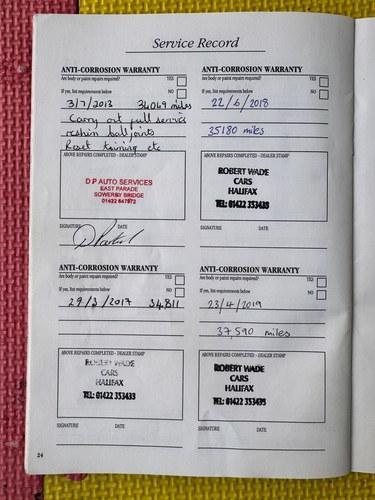 Service Record
ANTI-CORROSION WARRANTY
Are body or paint repairs required? YES
If yes, list requirements below NO
3/7/2013 34049 miles
Carry out full service
reshim balljoints
Reset timing etc
ABOVE REPAIRS COMPLETED - DEALER STAMP
D P AUTO SERVICES
EAST PARADE
SOWERBY BRIDGE
01422 647972
SIGNATURE DATE
ANTI-CORROSION WARRANTY
Are body or paint repairs required? YES
If yes, list requirements below NO
22/6/2018
35180 miles
ABOVE REPAIRS COMPLETED - DEALER STAMP
ROBERT WADE
CARS
HALIFAX
TEL: 01422 353433
SIGNATURE DATE
ANTI-CORROSION WARRANTY
Are body or paint repairs required? YES
If yes, list requirements below NO
29/3/2017 34,811
ABOVE REPAIRS COMPLETED - DEALER STAMP
ROBERT WADE
CARS
HALIFAX
TEL: 01422 353433
SIGNATURE DATE
ANTI-CORROSION WARRANTY
Are body or paint repairs required? YES
If yes, list requirements below NO
23/4/2019
37,590 miles
ABOVE REPAIRS COMPLETED - DEALER STAMP
ROBERT WADE
CARS
HALIFAX
TEL: 01422 353433
SIGNATURE DATE
24